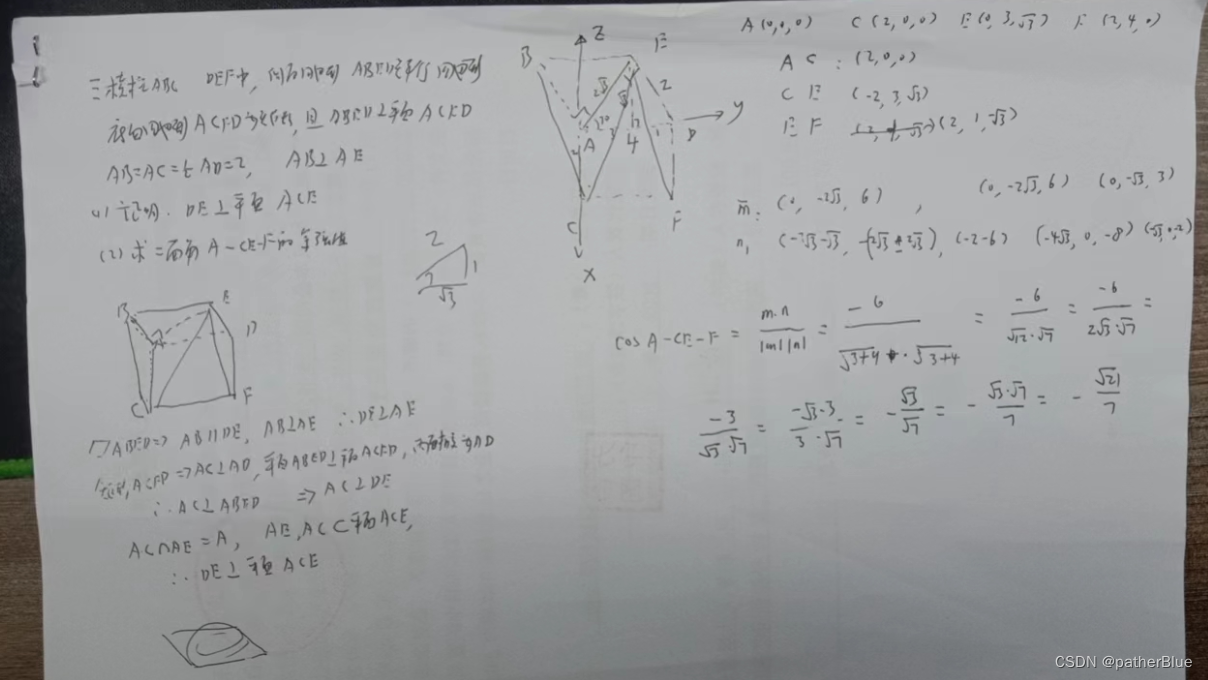 三棱柱ABC DEF中, 侧面四边形ABED是平行四边形
底面四边形ACFD为矩形, 且ABED⊥平面ACFD
AB=AC=½AD=2, AB⊥AE
(1) 证明: DE⊥平面ACE
(2) 求二面角A-CE-F的余弦值
B E
A D
C F
2
1
√3
▱ABED⇒AB∥DE, AB⊥AE ∴DE⊥AE
矩形ACFD⇒AC⊥AD, 平面ABED⊥平面ACFD,
∴AC⊥ABED ⇒AC⊥DE
AC∩AE=A, AE,AC⊂平面ACE,
∴DE⊥平面ACE
B Z E
2√3 √3 2
y
A 3 4 1 D
C F
X
A(0,0,0) C(2,0,0) E(0,3,√3) F(2,4,0)
AC: (2,0,0)
CE (-2,3,√3)
EF (2,1,-√3)
m: (0, -2√3, 6), (0,-2√3,6) (0,-√3,3)
n, (-3√3-√3, -(2√3-2√3), (-2-6) (-4√3, 0, -8) (-√3,0,-2)
cos A-CE-F = m·n / |m||n| = -6 / √3+9·√3+4 = -6 / √12·√7 = -6 / 2√3·√7 =
-3 / √3·√7 = -√3·3 / 3·√7 = -√3/√7 = -√3·√7/7 = -√21/7
CSDN @patherBlue